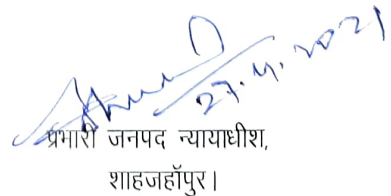 27.4.2021
प्रभारी जनपद न्यायाधीश,
शाहजहॉपुर।